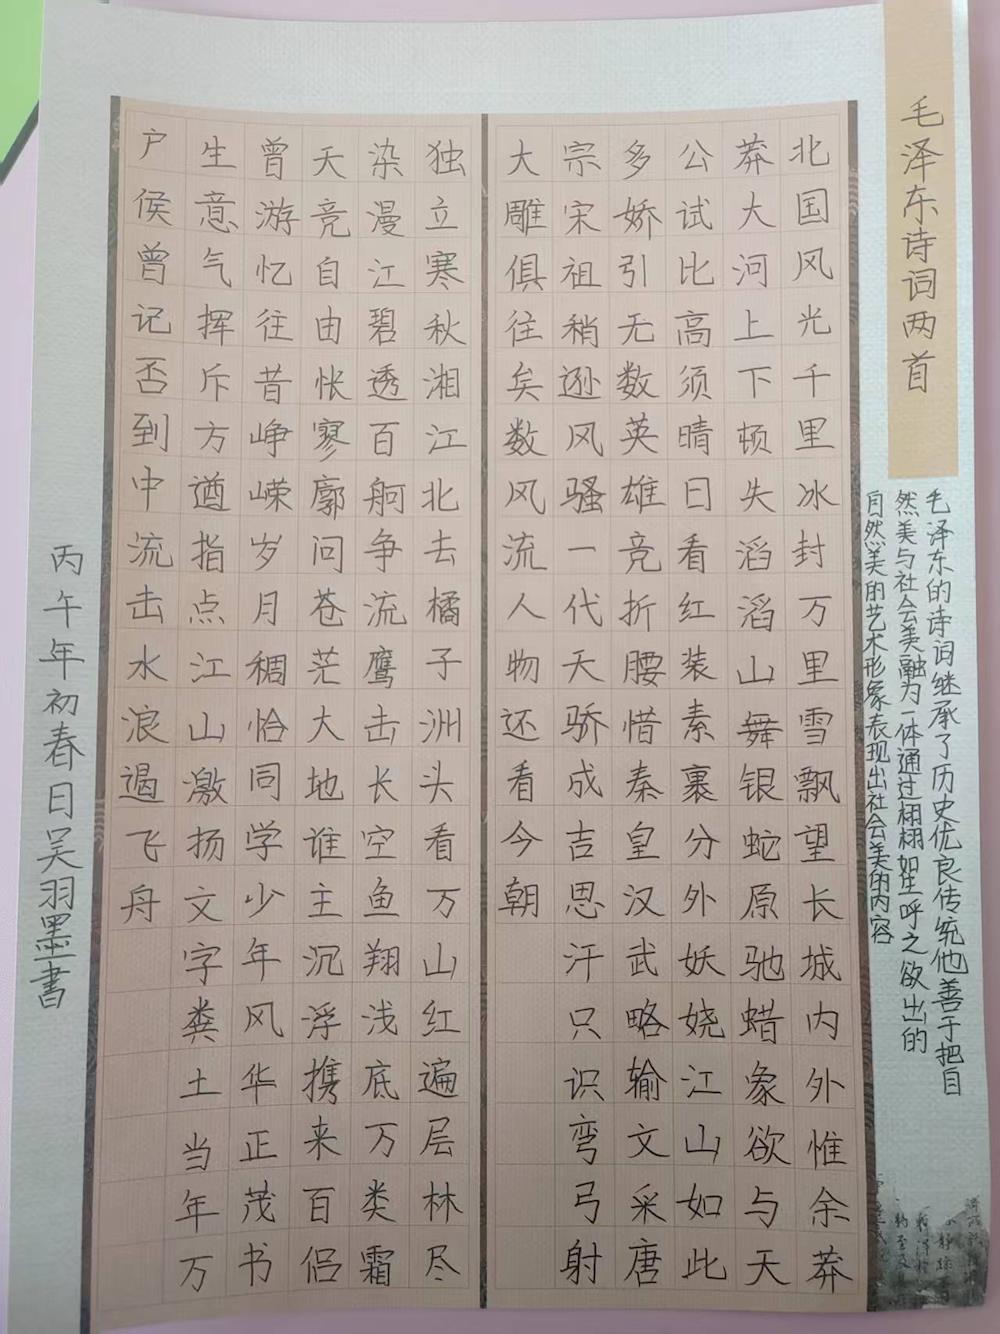 毛泽东诗词两首
毛泽东的诗词继承了历史优良传统他善于把自
然美与社会美融为一体通过栩栩如生呼之欲出的
自然美的艺术形象表现出社会美的内容
北国风光千里冰封万里雪飘望长城内外惟余莽
莽大河上下顿失滔滔山舞银蛇原驰蜡象欲与天
公试比高须晴日看红装素裹分外妖娆江山如此
多娇引无数英雄竞折腰惜秦皇汉武略输文采唐
宗宋祖稍逊风骚一代天骄成吉思汗只识弯弓射
大雕俱往矣数风流人物还看今朝
独立寒秋湘江北去橘子洲头看万山红遍层林尽
染漫江碧透百舸争流鹰击长空鱼翔浅底万类霜
天竞自由怅寥廓问苍茫大地谁主沉浮携来百侣
曾游忆往昔峥嵘岁月稠恰同学少年风华正茂书
生意气挥斥方遒指点江山激扬文字粪土当年万
户侯曾记否到中流击水浪遏飞舟
丙午年初春日吴羽墨書